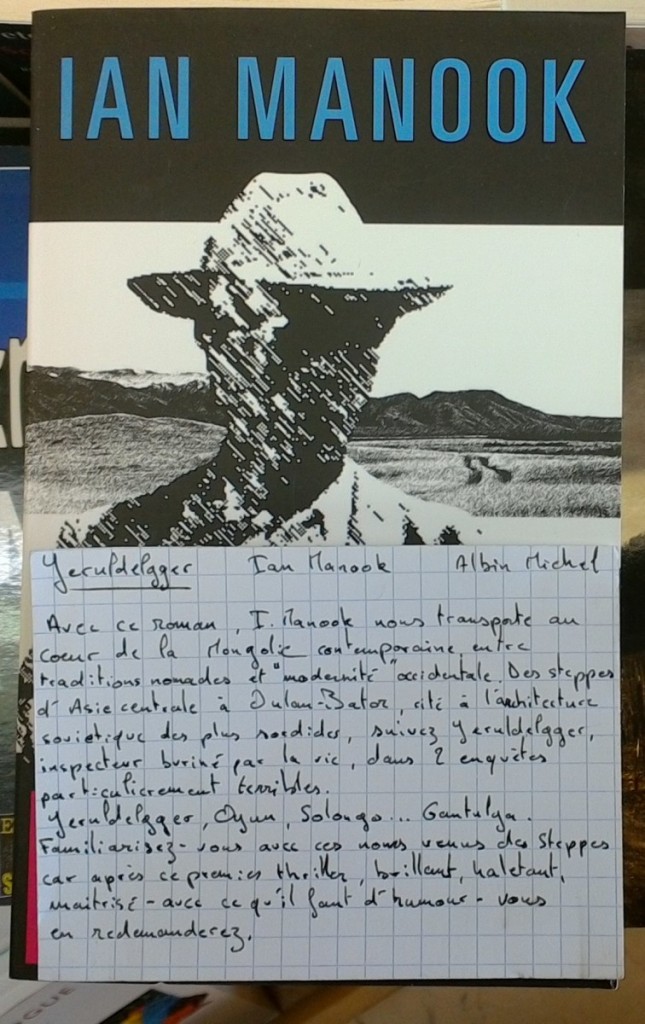 IAN MANOOK
Yeruldelgger Ian Manook Albin Michel
Avec ce roman, I. Manook nous transporte au
coeur de la Mongolie contemporaine, entre
traditions nomades et "modernité" occidentale. Des steppes
d'Asie centrale à Oulan-Bator, cité à l'architecture
soviétique des plus sordides, suivez Yeruldelgger,
inspecteur buriné par la vie, dans 2 enquêtes
particulièrement terribles.
Yeruldelgger, Oyun, Solongo... Gantulya.
Familiarisez-vous avec ces noms venus des steppes
car après ce premier thriller, brillant, haletant,
maitrisé - avec ce qu'il faut d'humour - vous
en redemanderez.
GUE